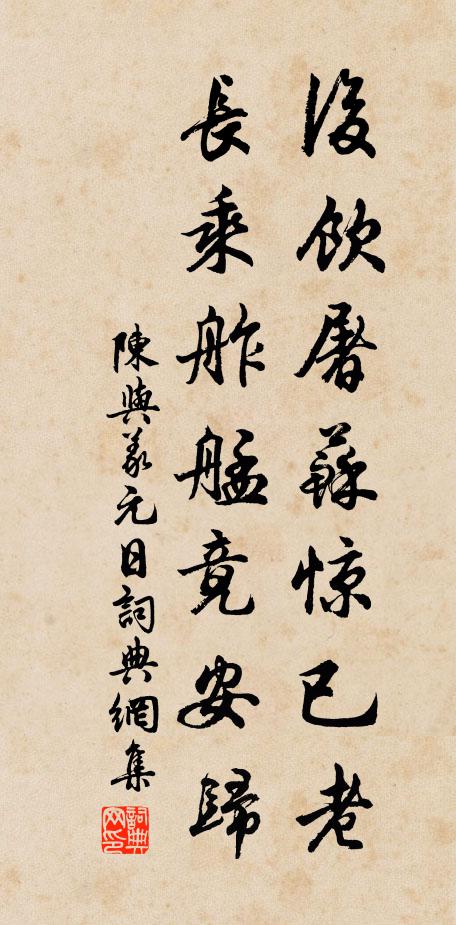 後飲屠蘇惊已老
長乘舴艋竟安歸
陳與義元日詞典網集
詞典網印